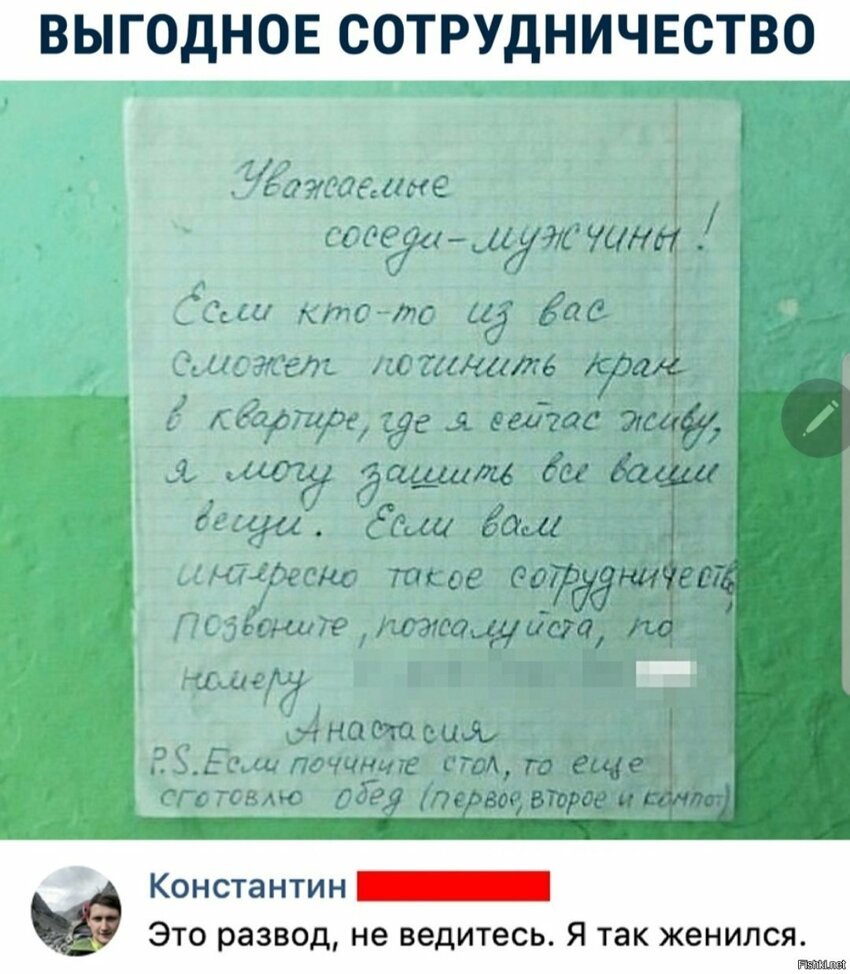 ВЫГОДНОЕ СОТРУДНИЧЕСТВО
Уважаемые
соседи-мужчины!
Если кто-то из вас
сможет починить кран
в квартире, где я сейчас живу,
я могу зашить все ваши
вещи. Если вам
интересно такое сотрудничеств,
позвоните, пожалуйста, по
номеру
Анастасия
P.S. Если почините стол, то еще
сготовлю обед (первое, второе и компот)
Константин
Это развод, не ведитесь. Я так женился.
Fishki.net